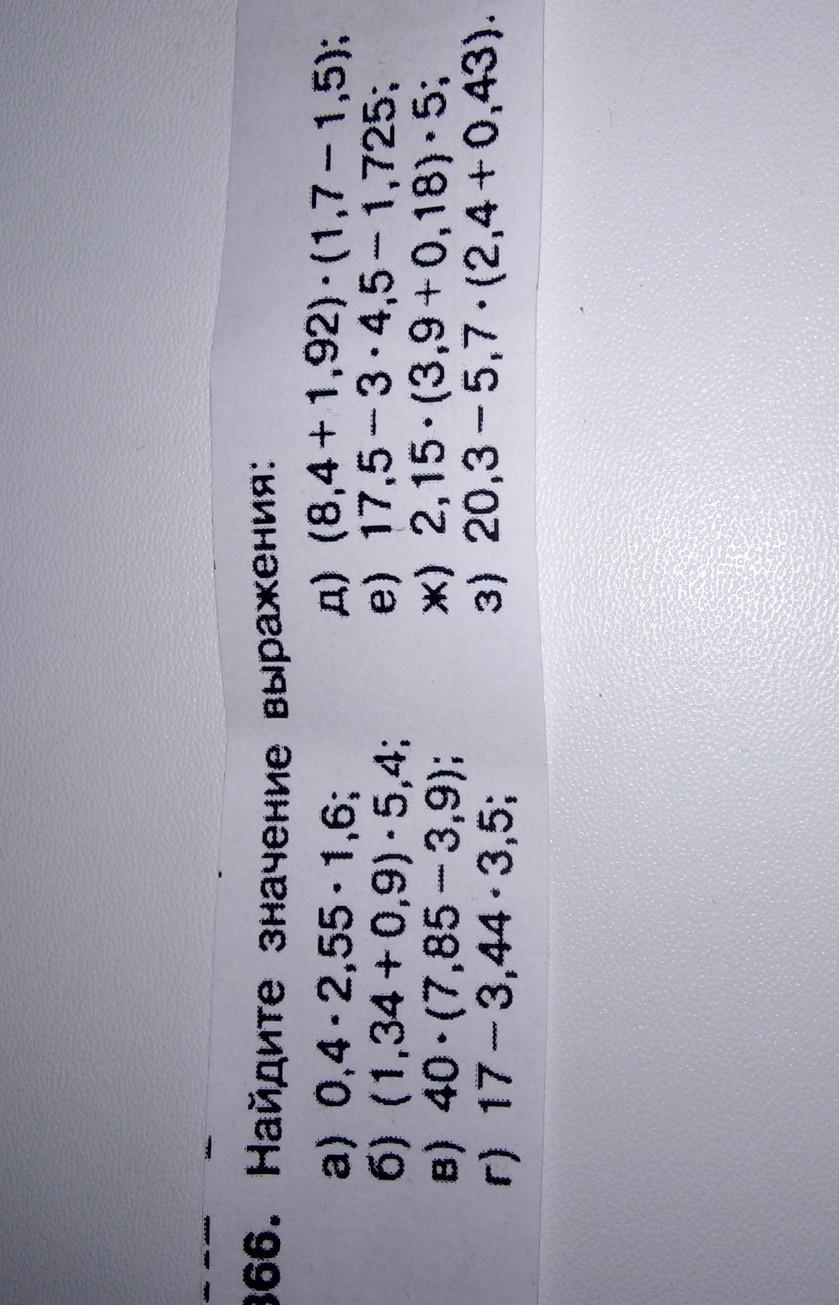 366. Найдите значение выражения:
а) 0,4 · 2,55 · 1,6;
б) (1,34 + 0,9) · 5,4;
в) 40 · (7,85 — 3,9);
г) 17 — 3,44 · 3,5;
д) (8,4 + 1,92) · (1,7 — 1,5);
е) 17,5 — 3 · 4,5 — 1,725;
ж) 2,15 · (3,9 + 0,18) · 5;
з) 20,3 — 5,7 · (2,4 + 0,43).